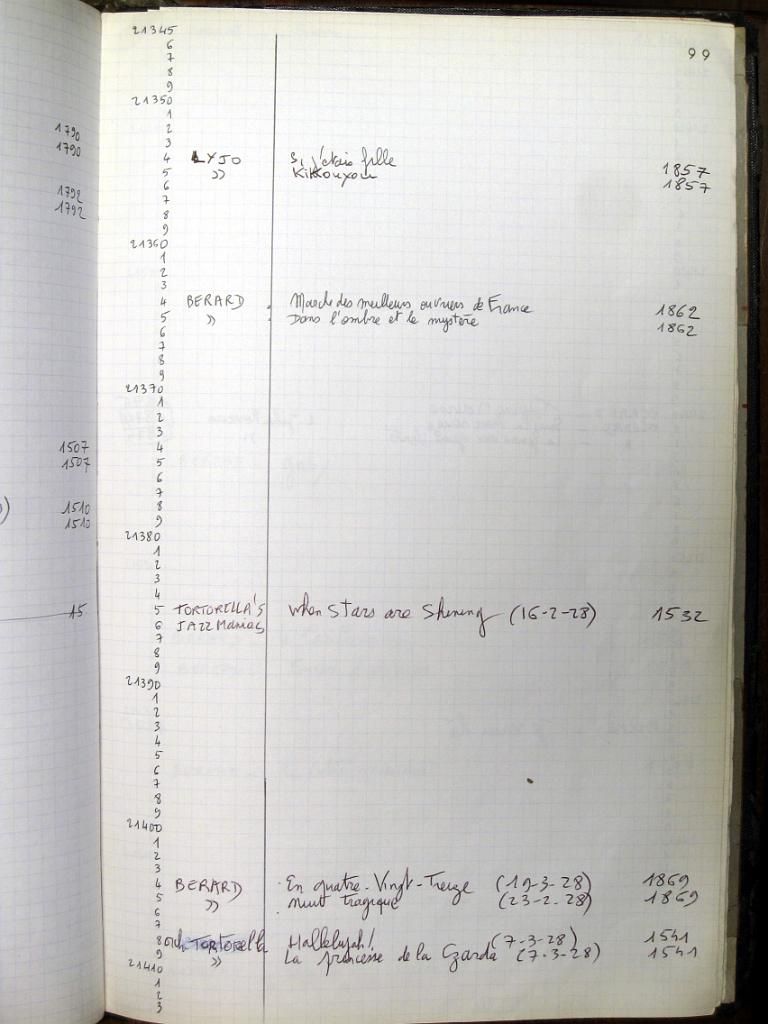 99
21345
6
7
8
9
21350
1
1790
2
1790
3
4 LYJO Si j'étais fille 1857
5 » Kikkouyou 1857
6
1792
7
1792
8
9
21360
1
2
3
4 BERARD Marche des meilleurs ouvriers de France 1862
5 » Dans l'ombre et le mystère 1862
6
7
8
9
21370
1
2
3
1507
4
1507
5
6
7
1510
8
1510
9
21380
1
2
3
4
15
5 TORTORELLA'S When Stars are Shining (16-2-28) 1532
6 JAZZ Maniacs
7
8
9
21390
1
2
3
4
5
6
7
8
9
21400
1
2
3
4 BERARD En quatre-Vingt-Treize (19-3-28) 1869
5 » nuit tragique (23-2-28) 1869
6
7
8 orch. Tortorella Hallelujah! (7-3-28) 1541
9 » La princesse de la Czarda (7-3-28) 1541
21410
1
2
3